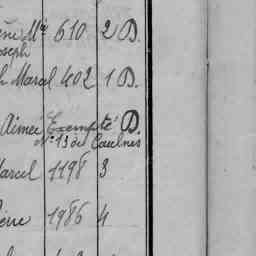 Mie 610 2 D.
Joseph
Marcel 402 1 D.
Aimée Exempté D.
N° 13 de Caulnes
Marcel 1198 3
1986 4